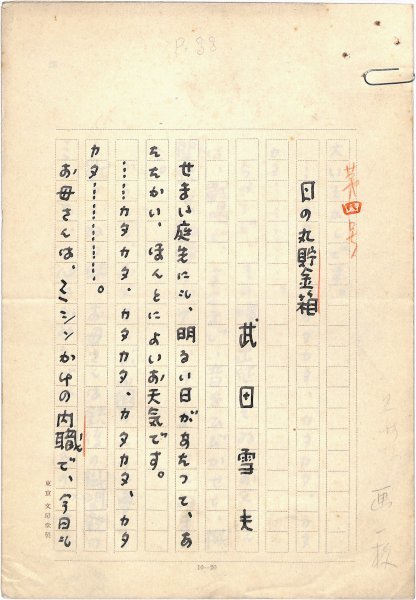 第四号
日の丸貯金箱
武田雪夫
せまい庭先にも、明るい日があたつて、あ
たたかい、ほんとによいお天気です。
……カタカタ、カタカタ、カタカタ、カタ
カタ…………。
お母さんは、ミシンかけの内職で、今日も
東京 文房堂製
10—20
画一枚